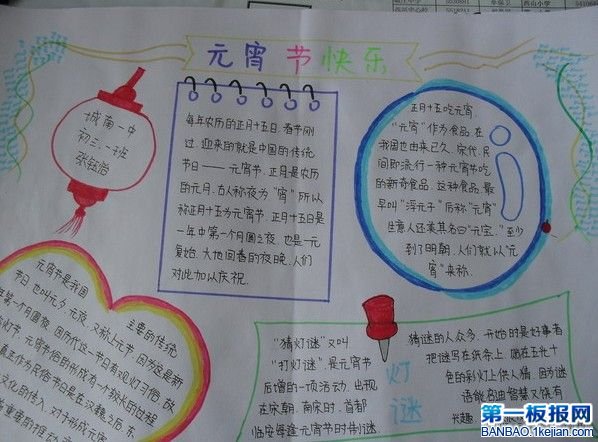 元宵节快乐
城南一中
初三.一班
每年农历的正月十五日.春节刚
过.迎来的就是中国的传统
节日——元宵节.正月是农历
的元月.古人称夜为“宵”所以
称正月十五为元宵节.正月十五日是
一年中第一个月圆之夜.也是一元
复始.大地回春的夜晚.人们
对此加以庆祝.
正月十五吃元宵.
“元宵”作为食品.在
我国也由来已久.宋代.民
间即流行一种元宵节吃
的新奇食品.这种食品.最
早叫“浮元子”后称“元宵”
生意人还美其名曰“元宝”.至少
到了明朝.人们就以“元
宵”来称.
元宵节是我国
主要的传统
节日.也叫元夕.元夜.又称上元节.因为这是新
年第一个月圆夜.因历代这一节日有观灯习俗.故
灯节.元宵节俗的形成有一个较长的过程
真正作为民俗节日是在汉魏之后.东
文化的传入.对于形成元宵
灯谜
“猜灯谜”又叫
“打灯谜”是元宵节
后增的一项活动.出现
在宋朝.南宋时.首都
临安每逢元宵节时制谜
猜谜的人众多.开始时是好事者
把谜写在纸条上.贴在五光十
色的彩灯上供人猜.因为谜
语能启迪智慧又饶有
兴趣
第一板报网
BANBAO.1kejian.com